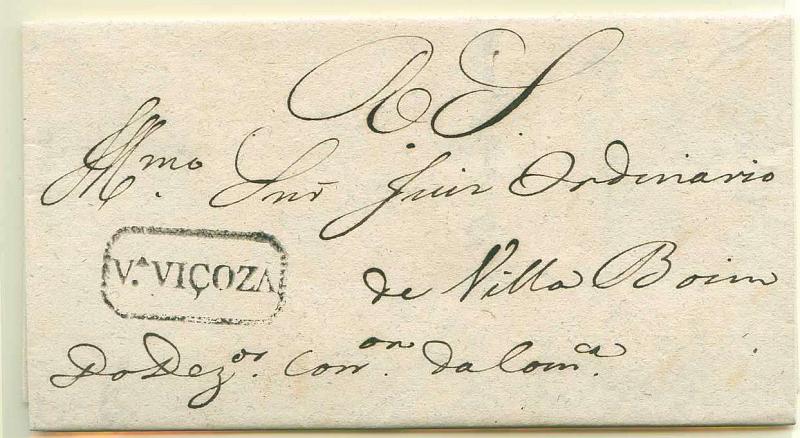 R S
Illmo. Snr Juiz Ordinario
V.ª VIÇOZA
de Villa Boim
Do Dezor. Corror. da Comca.